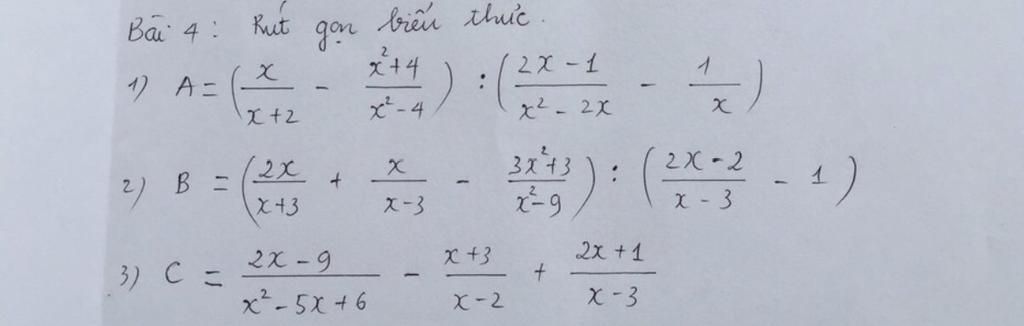 Bài 4: Rút gọn biểu thức.
1) A = (x/(x+2) - (x²+4)/(x²-4)) : ((2x-1)/(x²-2x) - 1/x)
2) B = (2x/(x+3) + x/(x-3) - (3x²+3)/(x²-9)) : ((2x-2)/(x-3) - 1)
3) C = (2x-9)/(x²-5x+6) - (x+3)/(x-2) + (2x+1)/(x-3)